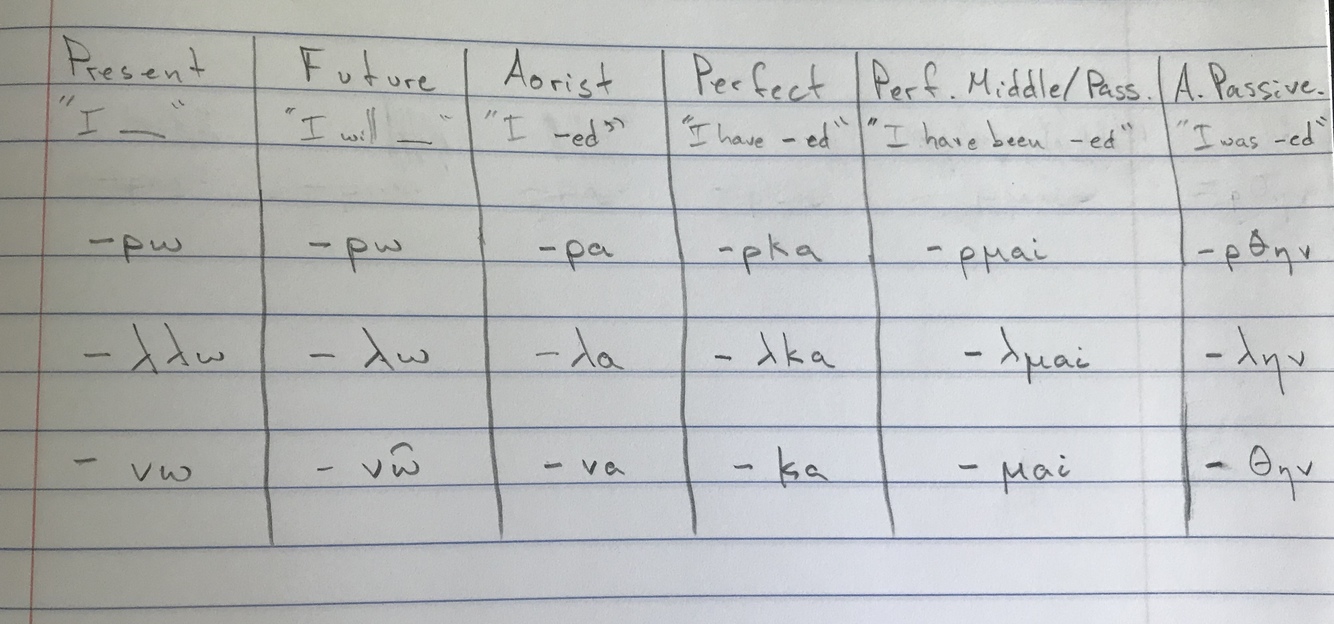 Present Future Aorist Perfect Perf. Middle/Pass. A. Passive.
"I __" "I will __" "I -ed" "I have -ed" "I have been -ed" "I was -ed"
-ρω -ρω -ρα -ρκα -ρμαι -ρθην
-λλω -λω -λα -λκα -λμαι -λην
-νω -νῶ -να -κα -μαι -θην